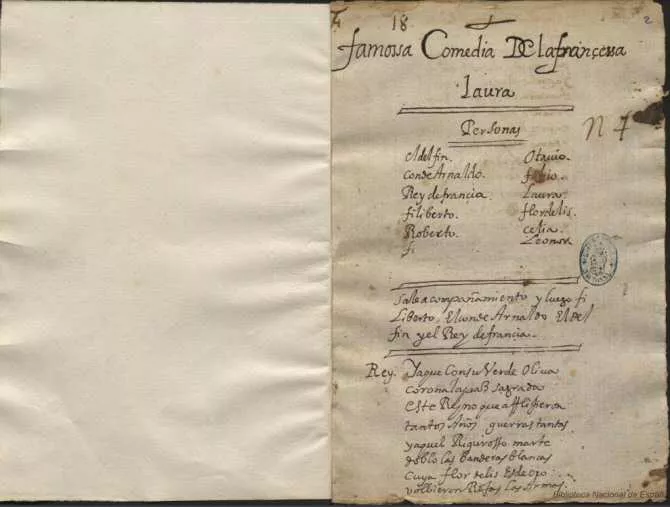 18
2
famossa Comedia De la françessa
laura
Personas
N 7
el delfin. Otauio.
conde Arnaldo. fabio.
Rey de francia. Laura.
filiberto. flordelis.
Roberto. celia.
Leonora
fi
Sale acompañamiento y luego fi
Liberto, El conde Arnaldo El del
fin y el Rey de francia.
Rey. Ya que Con su Verde Oliua
corona la paz sagrada
este Reyno que afflixeron
tantos Años guerras tantas
y aquel Rigurosso marte
doblo las Banderas blancas
Cuya flor de lis Es de oro
volbieron Rojas las Armas.
Biblioteca Nacional de España